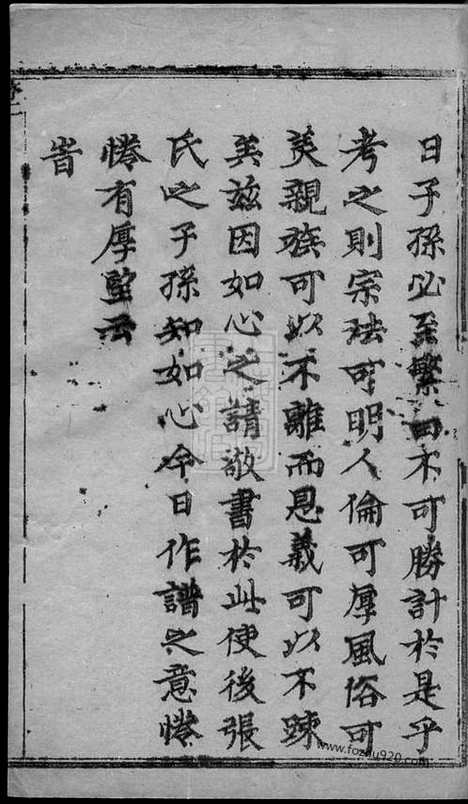 日子孫必至繁而不可勝計於是乎
考之則宗法可明人倫可厚風俗可
美親族可以不離而恩義可以不踈
矣茲因如心之請敬書於此使後張
氏之子孫知如心今日作譜之意惓
惓有厚望云
旹
www.fozhu920.com